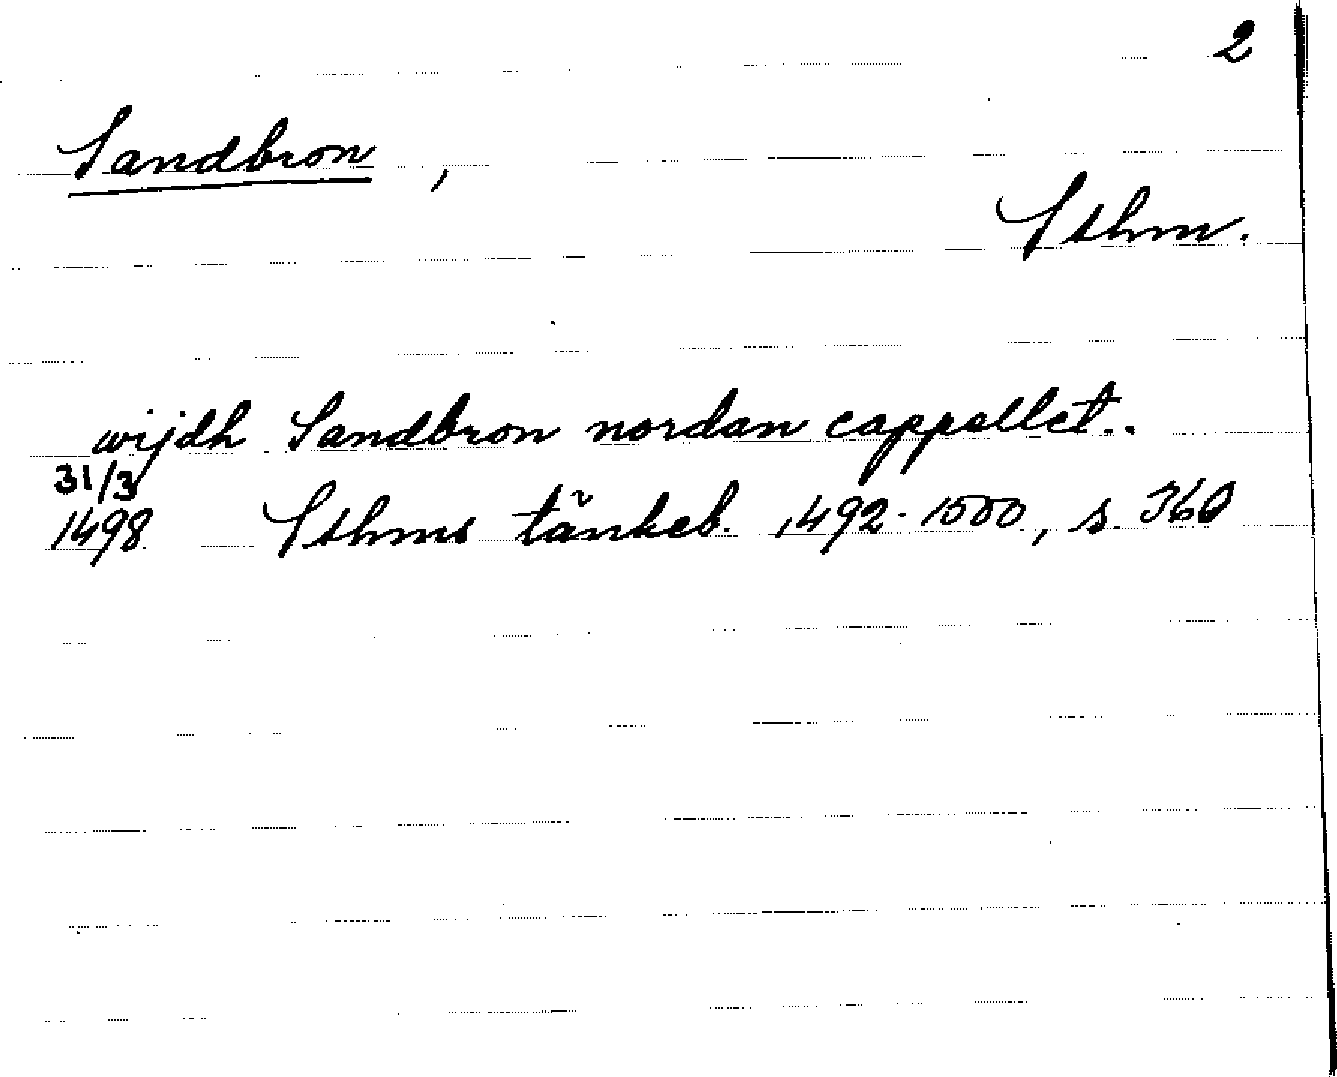 2
Sandbron,
Sthm.
wijdh Sandbron nordan cappellet..
31/3
1498 Sthms tänkeb. 1492-1500, s. 360